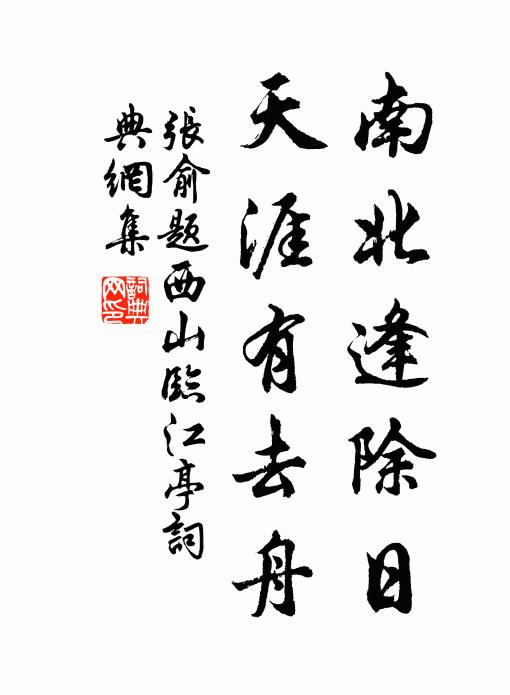 南北逢除日
天涯有去舟
張俞题西山臨江亭詞
典網集
詞典
网印